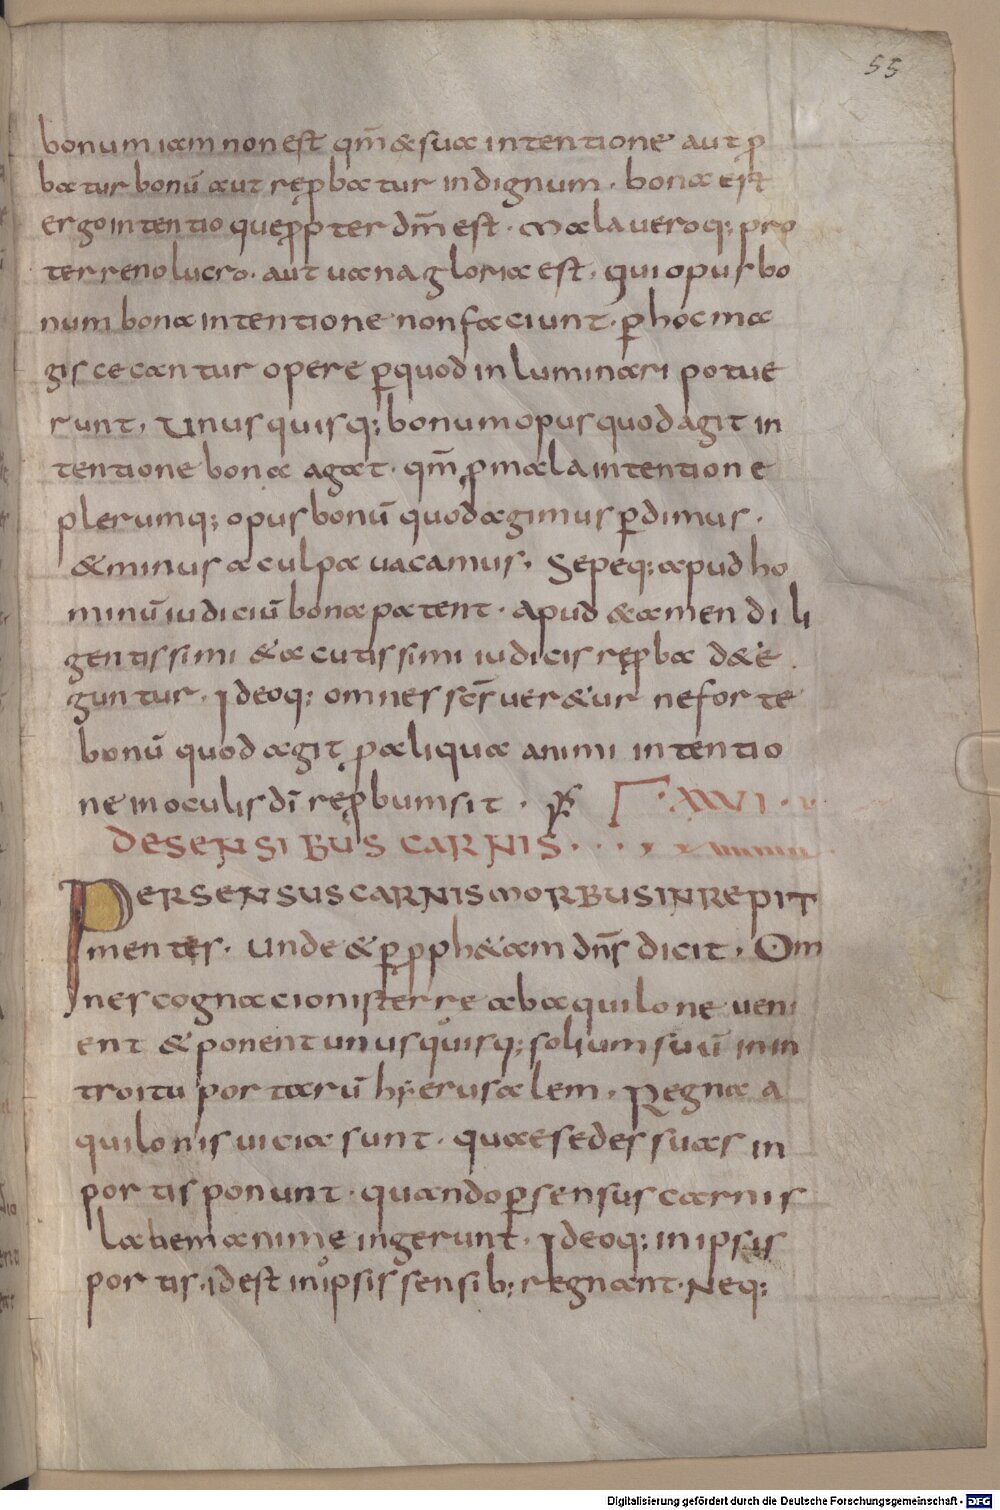 55
bonum iam non est qm̄ & sua intentione aut ꝓ
batur bonū aut reꝓbatur indignum. bona est
ergo intentio que ꝓpter dm̄ est. Mala vero q; pro
terreno lucro. aut vana gloria est. Qui opus bo
num bona intentione non faciunt. ꝑ hoc ma
gis cecantur opere ꝑ quod inluminari potue
runt. Unusquisq; bonum opus quod agit in
tentione bona agat. qm̄ ꝓ mala intentione
plerumq; opus bonū quod agimus ꝑdimus.
& minus a culpa vacamus. Sepe q; apud ho
minū iudiciū bona patent. apud &amen dili
gentissimi & acutissimi iudicis reꝓba d&e
guntur. Ideoq; omnes scs̄ ver&ur ne forte
bonū quod agit ꝓ aliqua animi intentio
ne in oculis dī reꝓbum sit.
XXVI.
DE SENSIBUS CARNIS...
PER SENSUS CARNIS MORBUS INREPIT
mentes. unde & ꝑ ꝓph&am dns̄ dicit. Om
nes cognacionis terre ab aquilone veni
ent & ponent unusquisq; solium suū in in
troitu portarū hyerusalem. Regna a
quilonis vicia sunt. quae sedes suas in
portis ponunt. quando ꝑ sensus carnis
labem anime ingerunt. Ideoq; in ipsis
portis. id est in ipsis sensib; regnant. Neq;
Digitalisierung gefördert durch die Deutsche Forschungsgemeinschaft - DFG